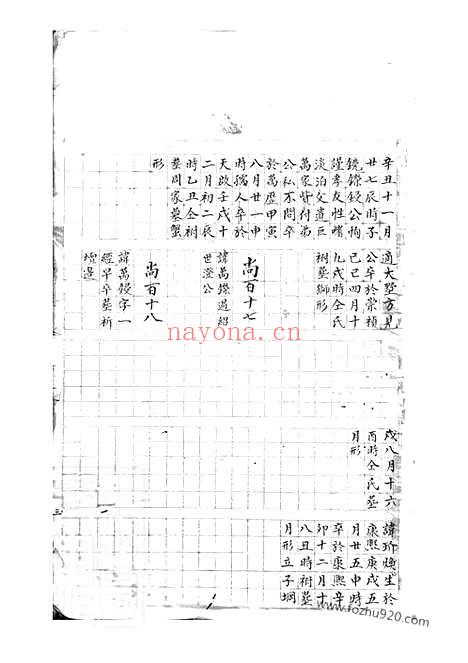 辛丑十一月
廿七辰時子
鏡鏢鋑公恂
謹孝友性嗜
淡泊文遺巨
萬家皆付弟
公私不問卒
於萬歷甲寅
八月廿一申
時孺人卒於
天啟壬戌十
二月初二辰
時乙丑仝祔
塟問家墓蟹
形
適大墅方見
公卒於崇禎
己巳四月十
九戌時仝氏
祔塟獅形
尚百十七
諱萬鏢過紹
世澄公
尚百十八
諱萬鋑字一
經早卒墓祈
壇邊
戌八月十六
酉時仝氏墓
月形
諱珎煥生於
康熙庚戌五
月廿五申時
卒於康熙辛
卯十二月十
八丑時祔墓
月形立子堈
一
三
nayona.cn
www.fozhu920.com